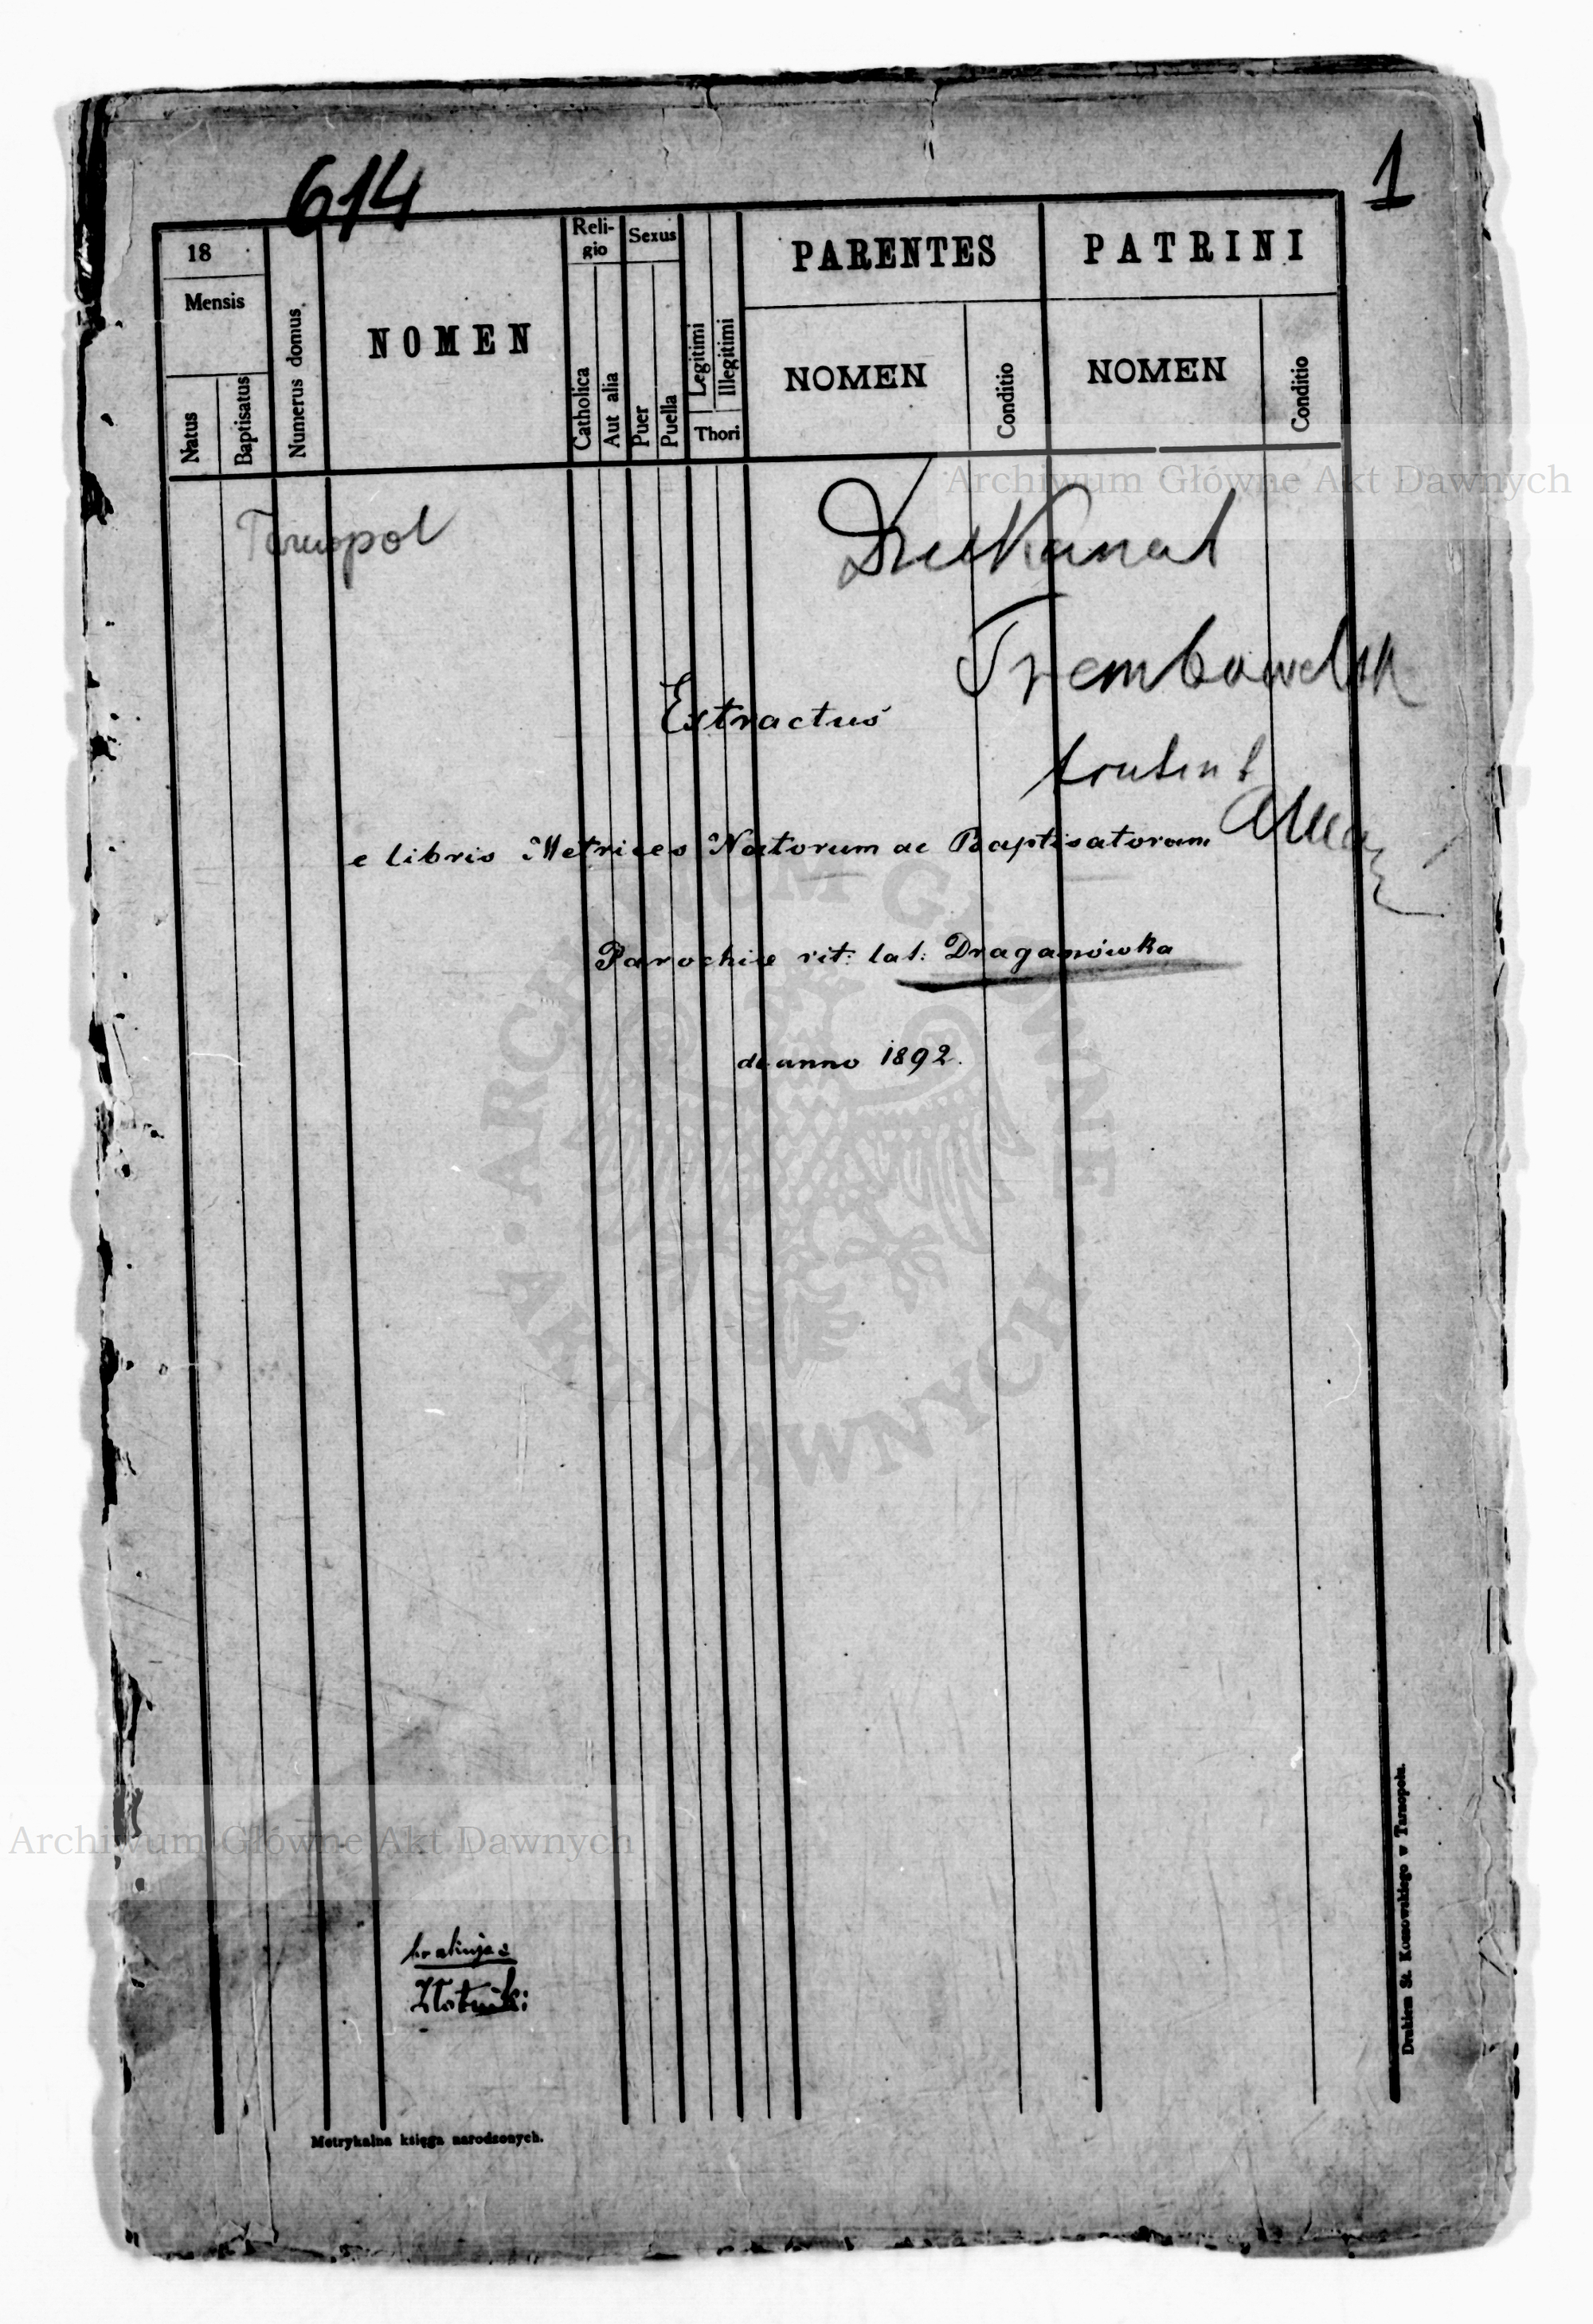 614
1
18
Mensis
Natus
Baptisatus
Numerus domus
NOMEN
Religio
Catholica
Aut alia
Sexus
Puer
Puella
Legitimi
Illegitimi
Thori
PARENTES
NOMEN
Conditio
PATRINI
NOMEN
Conditio
Archiwum Główne Akt Dawnych
Tarnopol
Dziekanat
Trembowelsk
Extractus
e libris Metrices Natorum ac Baptisatorum
Parochiæ rit: lat: Draganówka
de anno 1892.
ARCHIWUM GŁÓWNE
AKT DAWNYCH
Archiwum Główne Akt Dawnych
Złotniki
Drukiem St. Kossowskiego w Tarnopolu.
Metrykalna księga narodzonych.